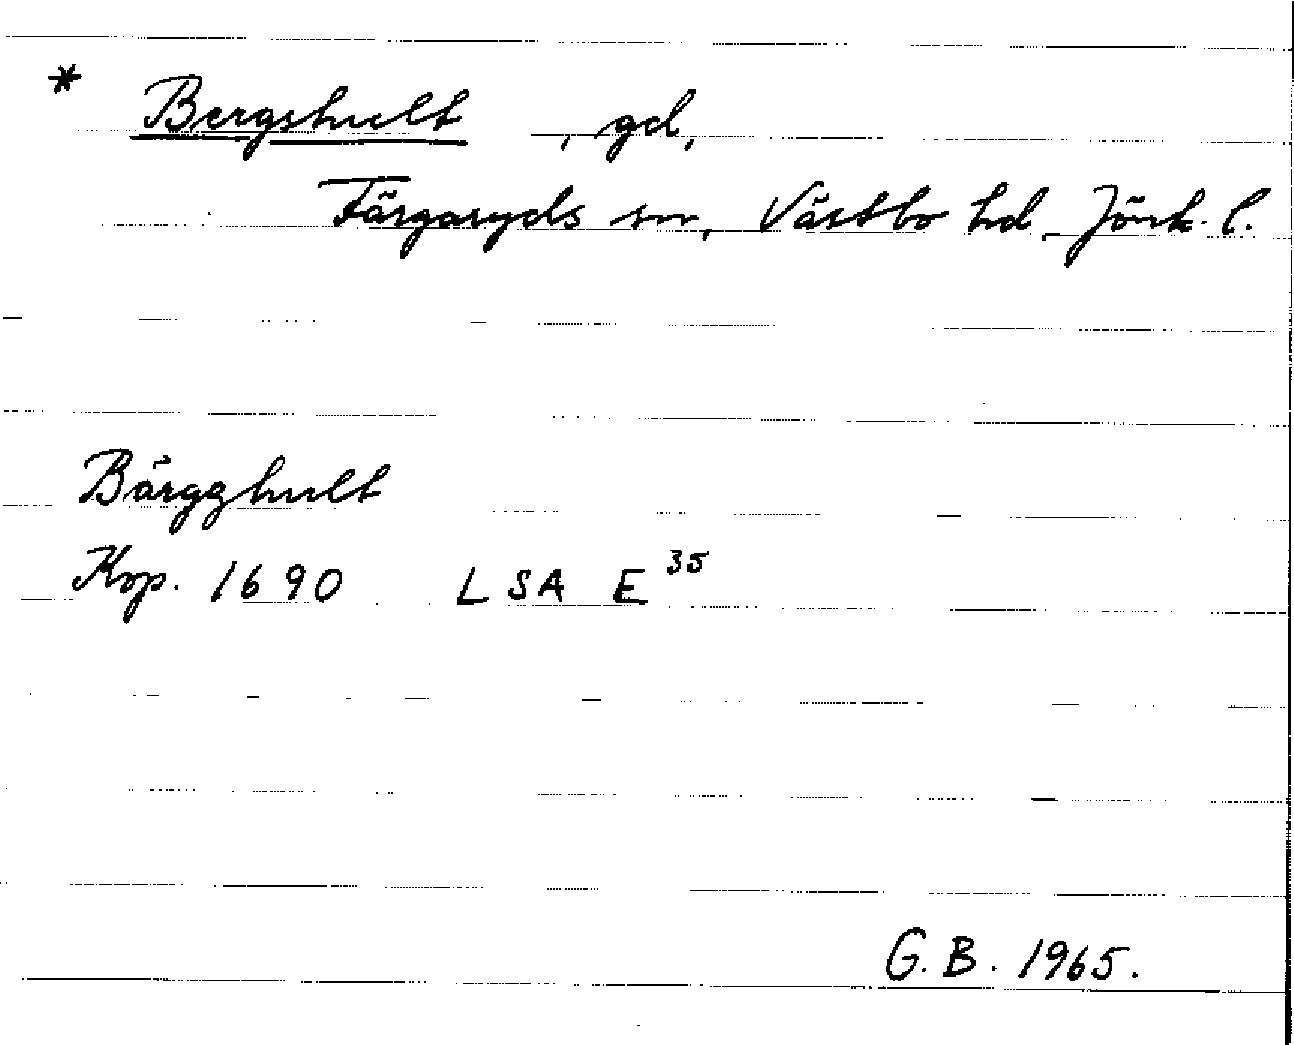 * Bergshult , gd,
Färgaryds sn, Västbo hd, Jönk. l.
Bärgghult
Kop. 1690 LSA E 35
G. B. 1965.